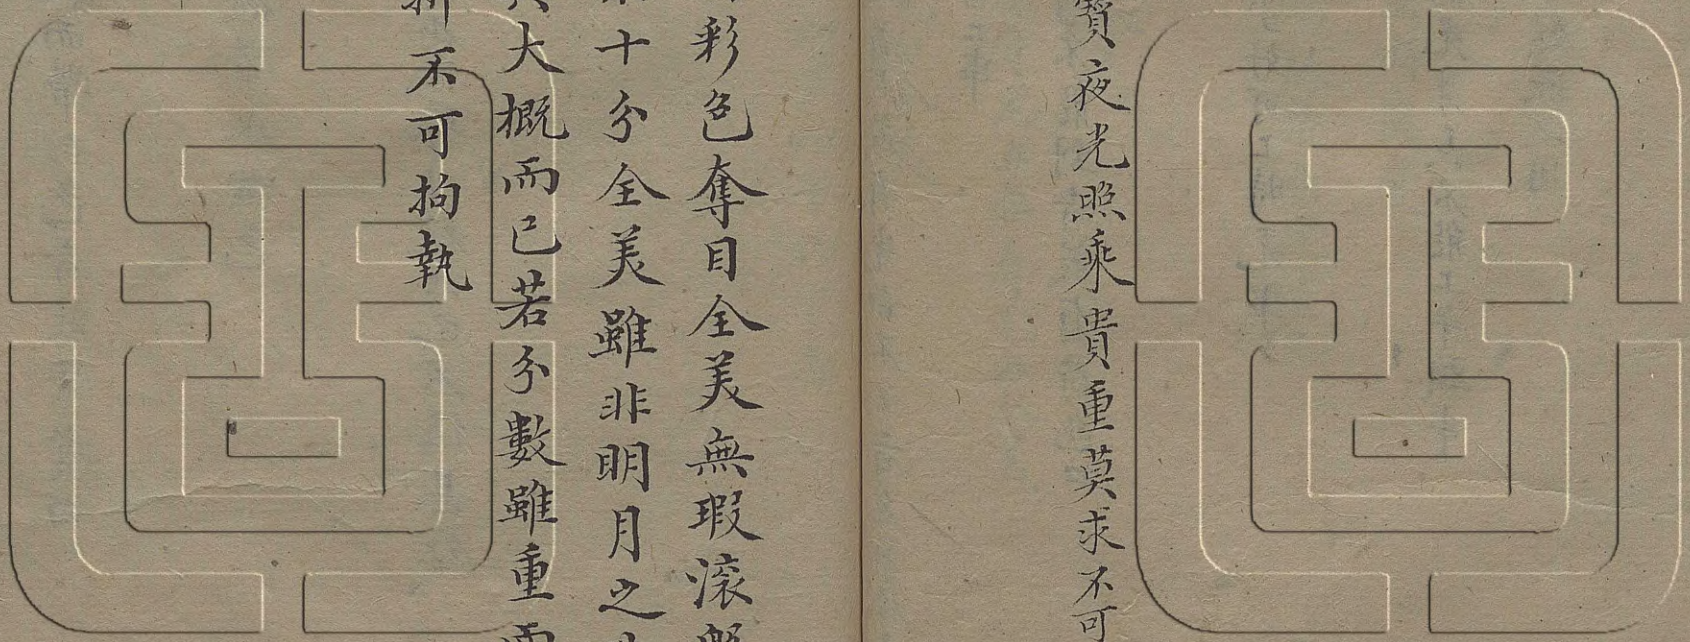 寳夜光照乘貴重莫求不可
彩色奪目全美無瑕滚
十分全美雖非明月之
大概而已若分數雖重
不可拘執